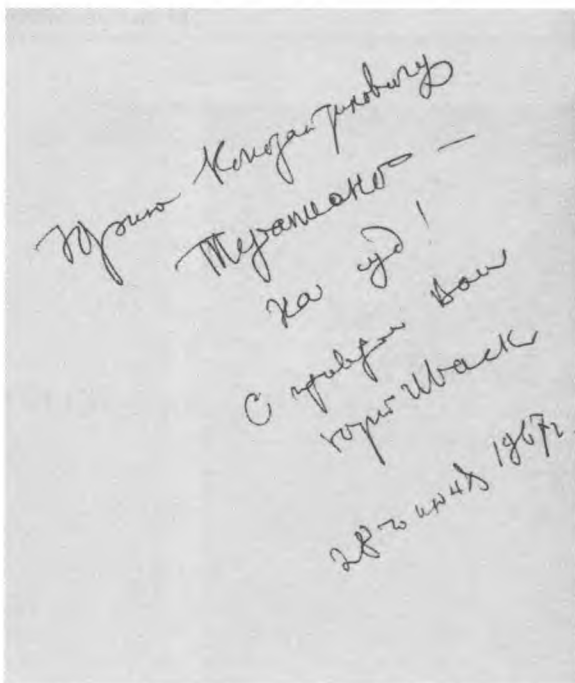 Юрию Константиновичу
Терапиано —
на суд!
С приветом Ваш
Юрий Иваск
28-го июня 1967 г.